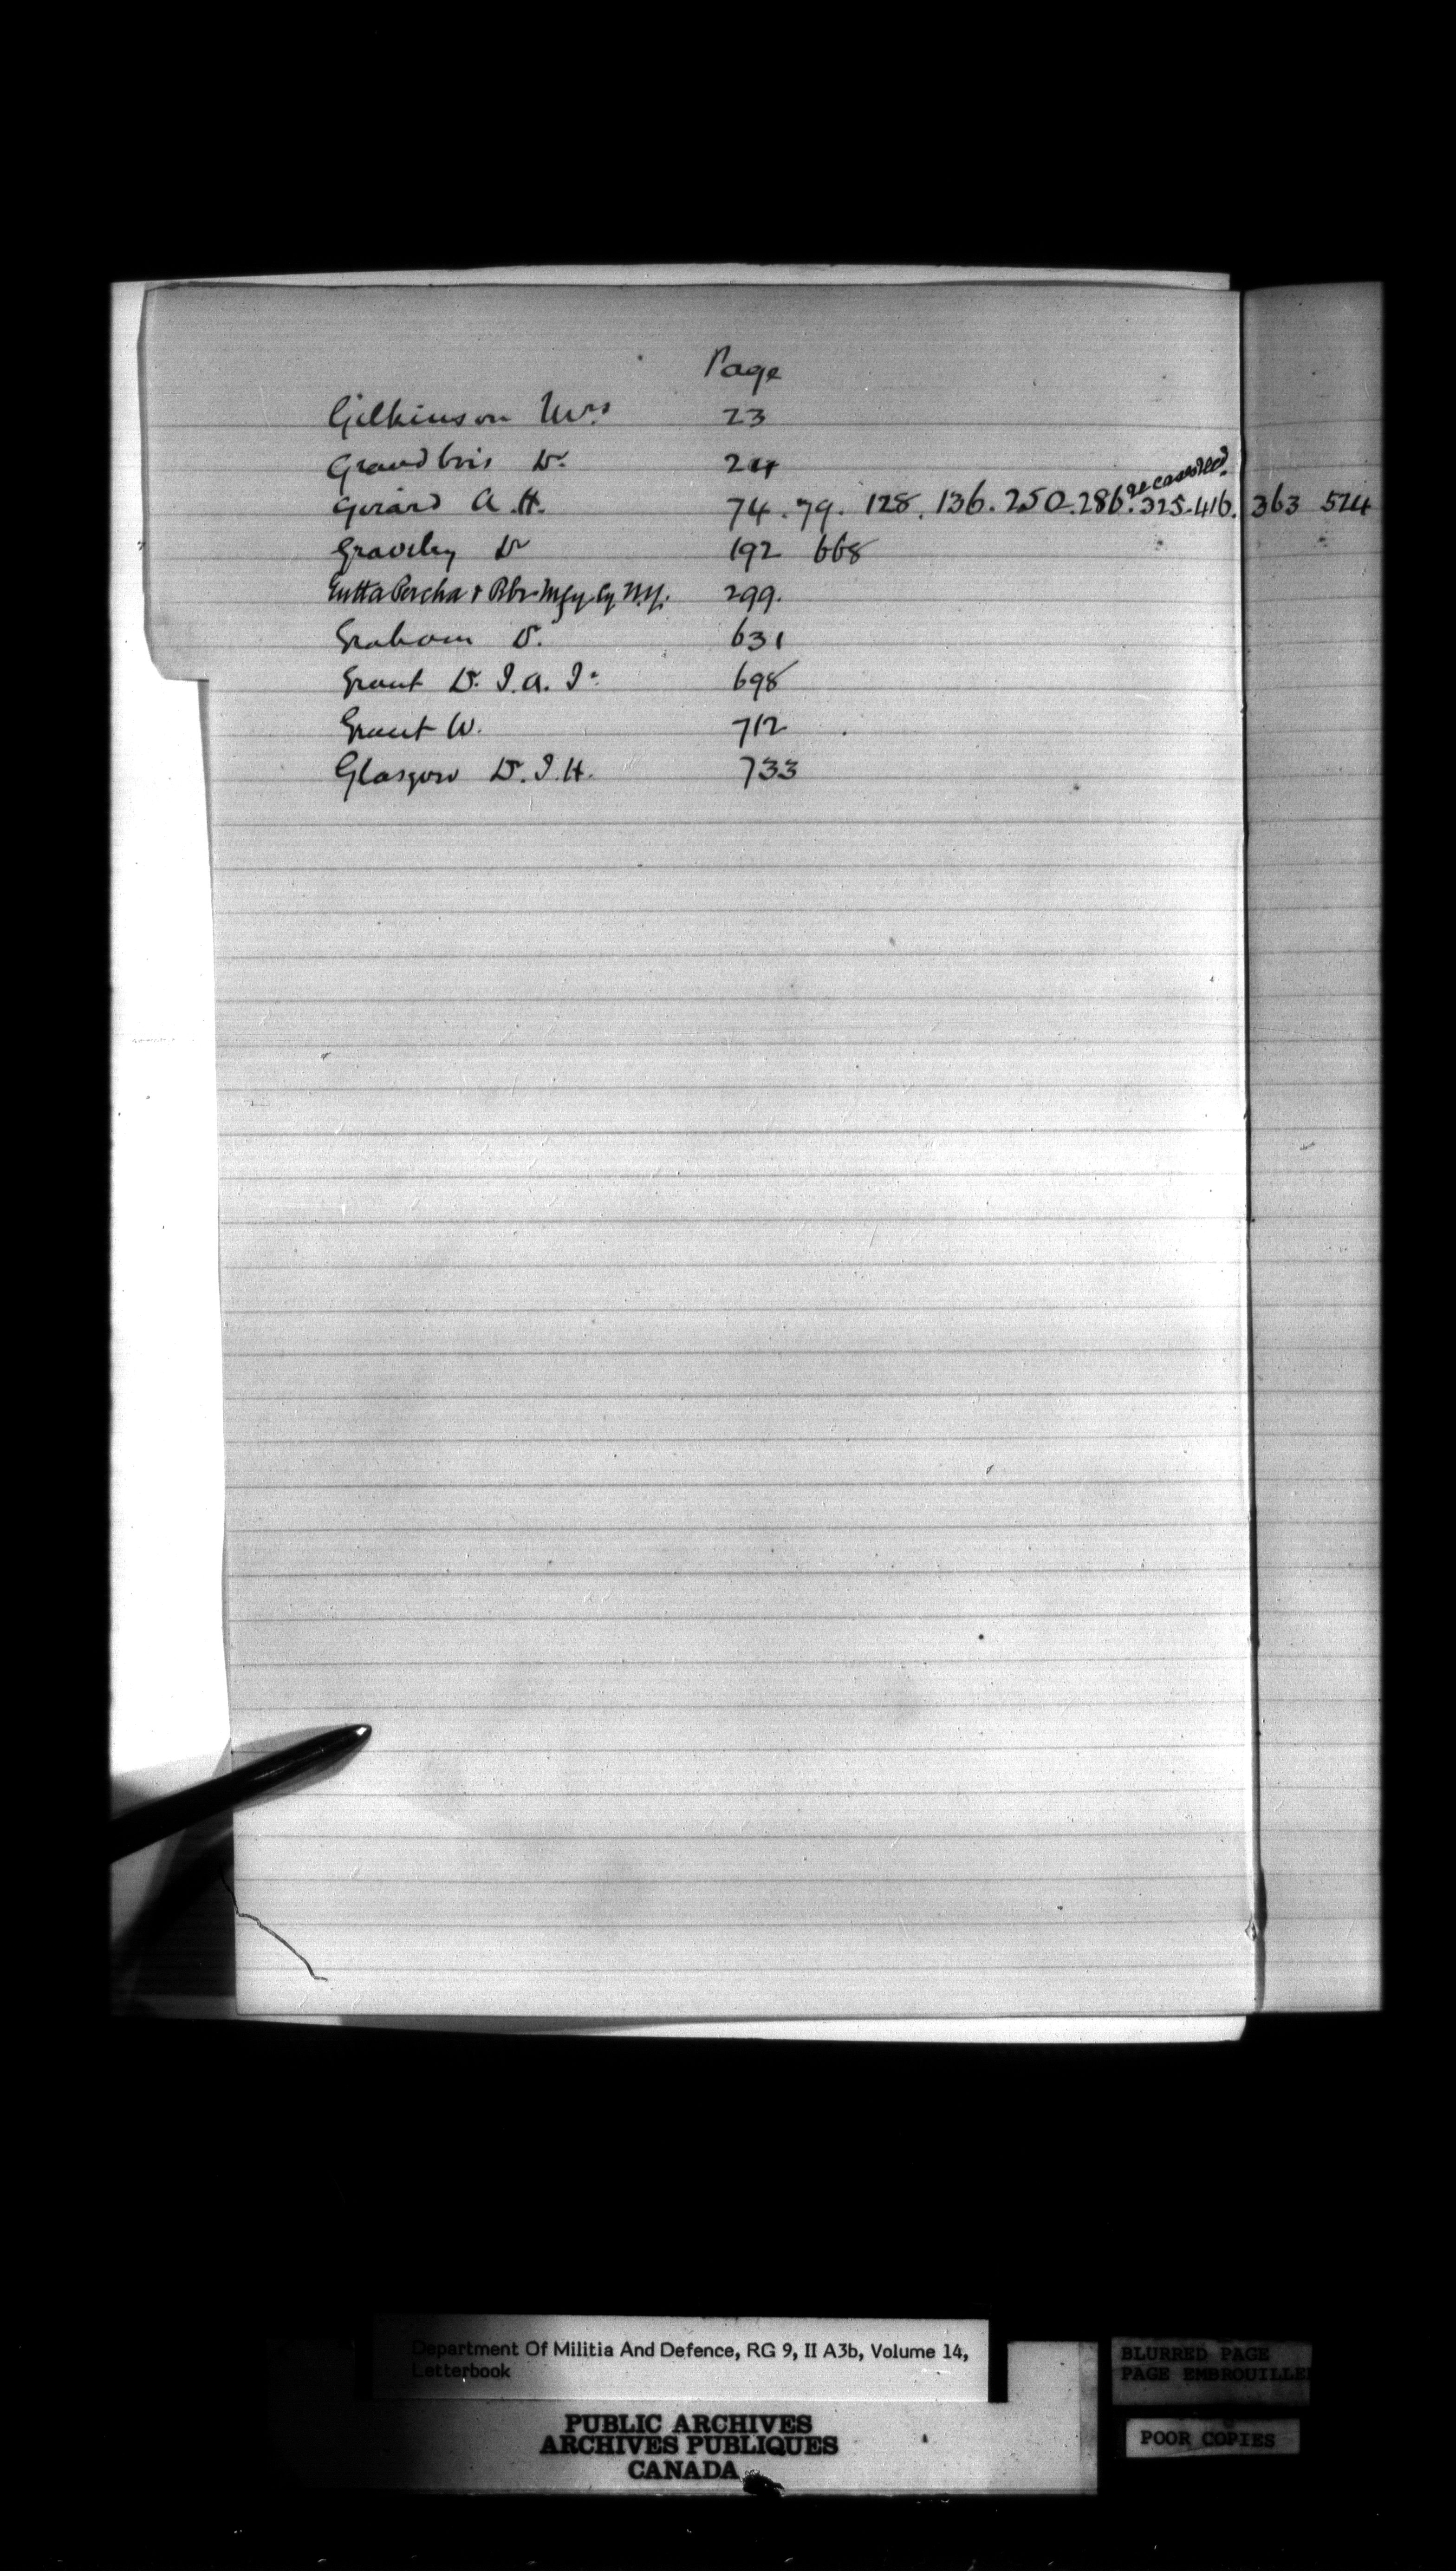 Page
Gilkinson Mrs 23
Grandbois Dr. 24
Girard A.H. 74. 79. 128. 136. 250. 286. 325. 416. 363 524
Graveley Dr 192 668
Gutta Percha & Rbr Mfg Cy N.Y. 299.
Graham Dr. 631
Grant Dr. J. A. Jr. 698
Grant W. 712
Glasgow Dr. J. H. 733
Department Of Militia And Defence, RG 9, II A3b, Volume 14,
Letterbook
PUBLIC ARCHIVES
ARCHIVES PUBLIQUES
CANADA
BLURRED PAGE
PAGE EMBROUILLE
POOR COPIES